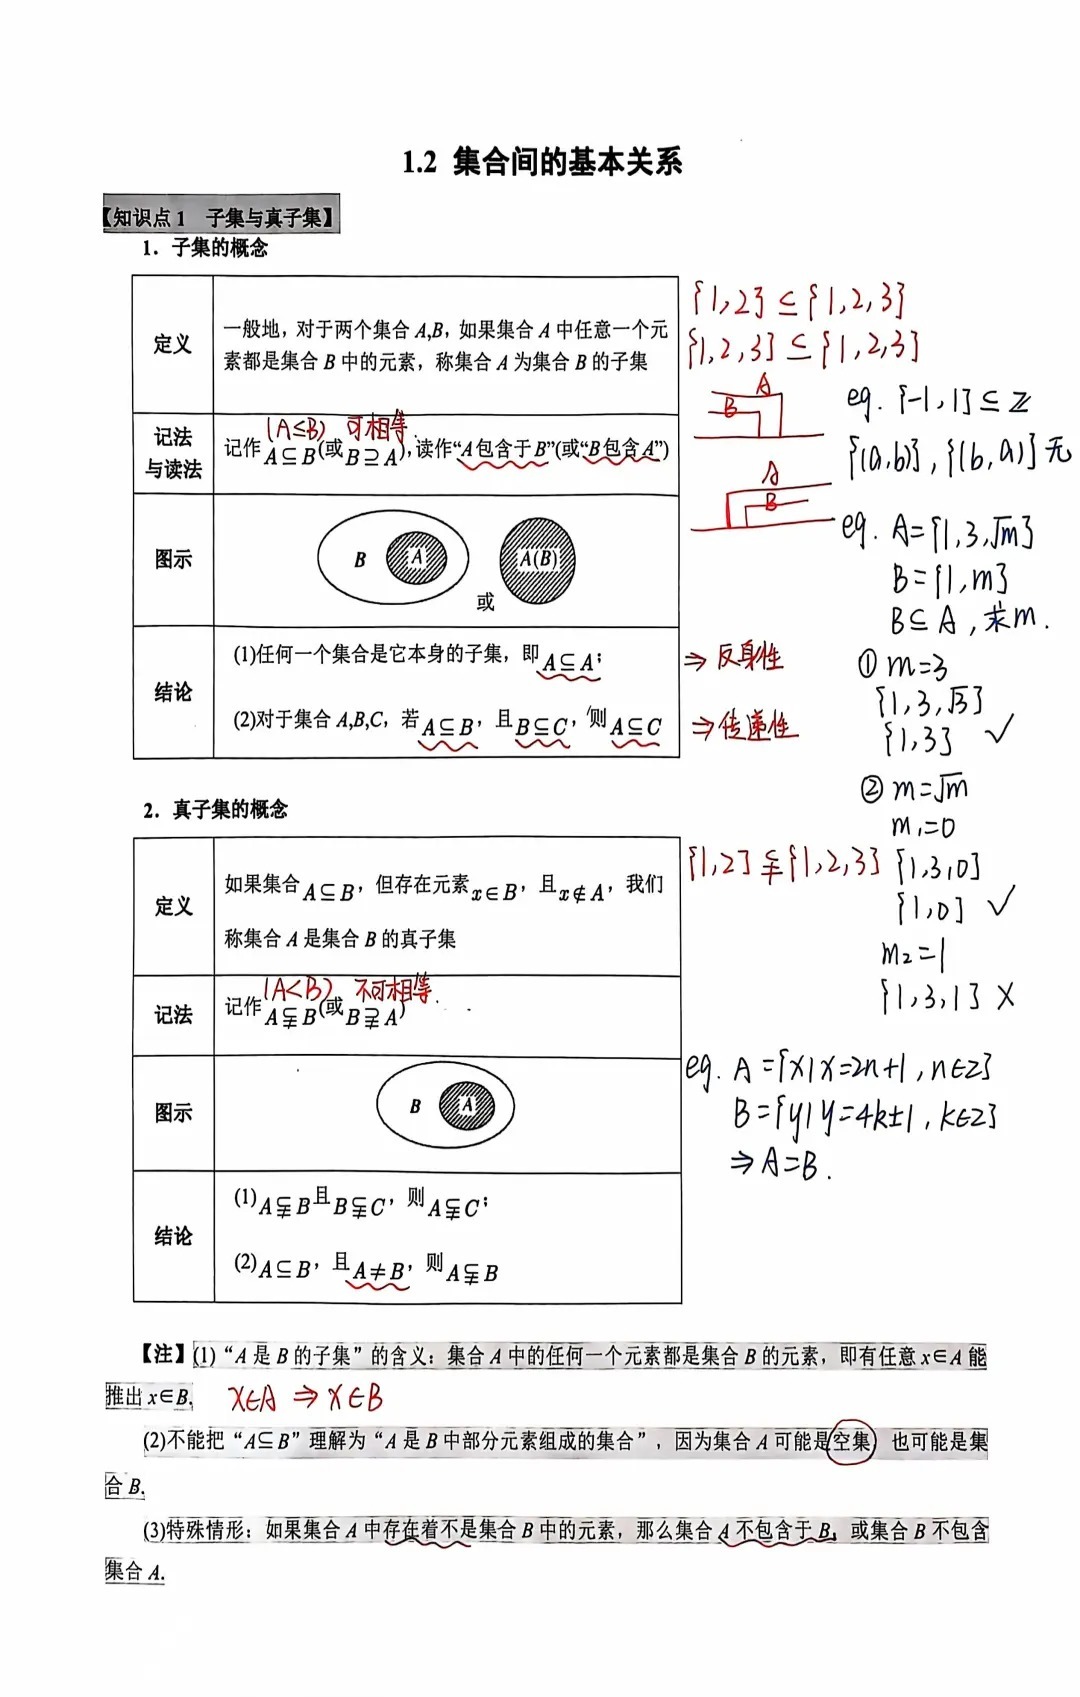 1.2 集合间的基本关系
【知识点1 子集与真子集】
1．子集的概念
定义
一般地，对于两个集合 A,B，如果集合 A 中任意一个元
素都是集合 B 中的元素，称集合 A 为集合 B 的子集
{1,2} ⊆ {1,2,3}
{1,2,3} ⊆ {1,2,3}
A
B
A
B
eg. {-1,1} ⊆ ℤ
{(a,b)}, {(b,a)} 无
记法
与读法
(A≤B) 可相等
记作 A⊆B(或 B⊇A)，读作“A包含于B”(或“B包含A”)
图示
B A A(B)
或
eg. A={1,3,√m}
B={1,m}
B⊆A，求m.
结论
(1)任何一个集合是它本身的子集，即 A⊆A；
⇒ 反身性
(2)对于集合 A,B,C，若 A⊆B，且 B⊆C，则 A⊆C
⇒ 传递性
① m=3
{1,3,√3}
{1,3} ✓
② m=√m
m₁=0
{1,3,0}
{1,0} ✓
m₂=1
{1,3,1} ×
2．真子集的概念
定义
如果集合 A⊆B，但存在元素 x∈B，且 x∉A，我们
称集合 A 是集合 B 的真子集
{1,2} ⫋ {1,2,3}
记法
(A<B) 不可相等.
记作 A⫋B(或 B⫌A)
图示
B A
eg. A={x|x=2n+1,n∈Z}
B={y|y=4k±1,k∈Z}
⇒ A=B.
结论
(1)A⫋B且B⫋C，则 A⫋C；
(2)A⊆B，且 A≠B，则 A⫋B
【注】(1)“A 是 B 的子集”的含义：集合 A 中的任何一个元素都是集合 B 的元素，即有任意 x∈A 能
推出 x∈B. x∈A ⇒ x∈B
(2)不能把“A⊆B”理解为“A 是 B 中部分元素组成的集合”，因为集合 A 可能是空集，也可能是集
合 B.
(3)特殊情形：如果集合 A 中存在着不是集合 B 中的元素，那么集合 A 不包含于 B，或集合 B 不包含
集合 A.